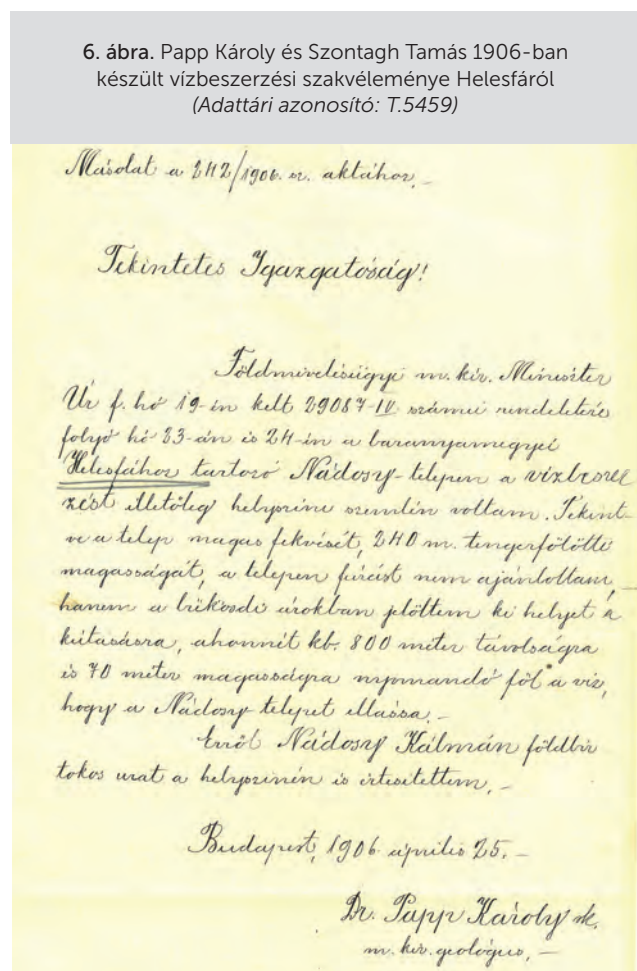 6. ábra. Papp Károly és Szontagh Tamás 1906-ban
készült vízbeszerzési szakvéleménye Helesfáról
(Adattári azonosító: T.5459)
Másolat a 242/1906. sz. aktához.–
Tekintetes Igazgatóság!
Földmivelésügyi m. kir. Miniszter
Úr f. hó 19-én kelt 29087-IV számú rendeletére
folyó hó 23-án és 24-én a baranyamegyei
Helesfához tartozó Nádosy-telepen a vízbeszer
zést illetőleg helyszini szemlén voltam. Tekint-
ve a telep magas fekvését, 240 m. tengerfölötti
magasságát, a telepen fúrást nem ajánlottam,–
hanem a bükösdi árokban jelöltem ki helyet a
kútásásra, ahonnét kb. 800 méter távolságra
és 70 méter magasságra nyomandó föl a víz,
hogy a Nádosy-telepet ellássa.–
Erről Nádosy Kálmán földbir
tokos urat a helyszinén is értesítettem.–
Budapest, 1906 április 25.–
Dr. Papp Károly sk.
m. kir. geológus.–